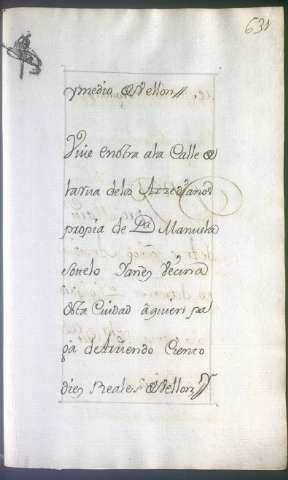 631
y medio de Vellon//
Vive en otra a la Calle de
la rua de los Arzedianos
propia de Da Manuela
Sotelo Yañez Vecina
desta Ciudad a quien pa
ga de Arriendo Ciento
diez Reales de Vellon//